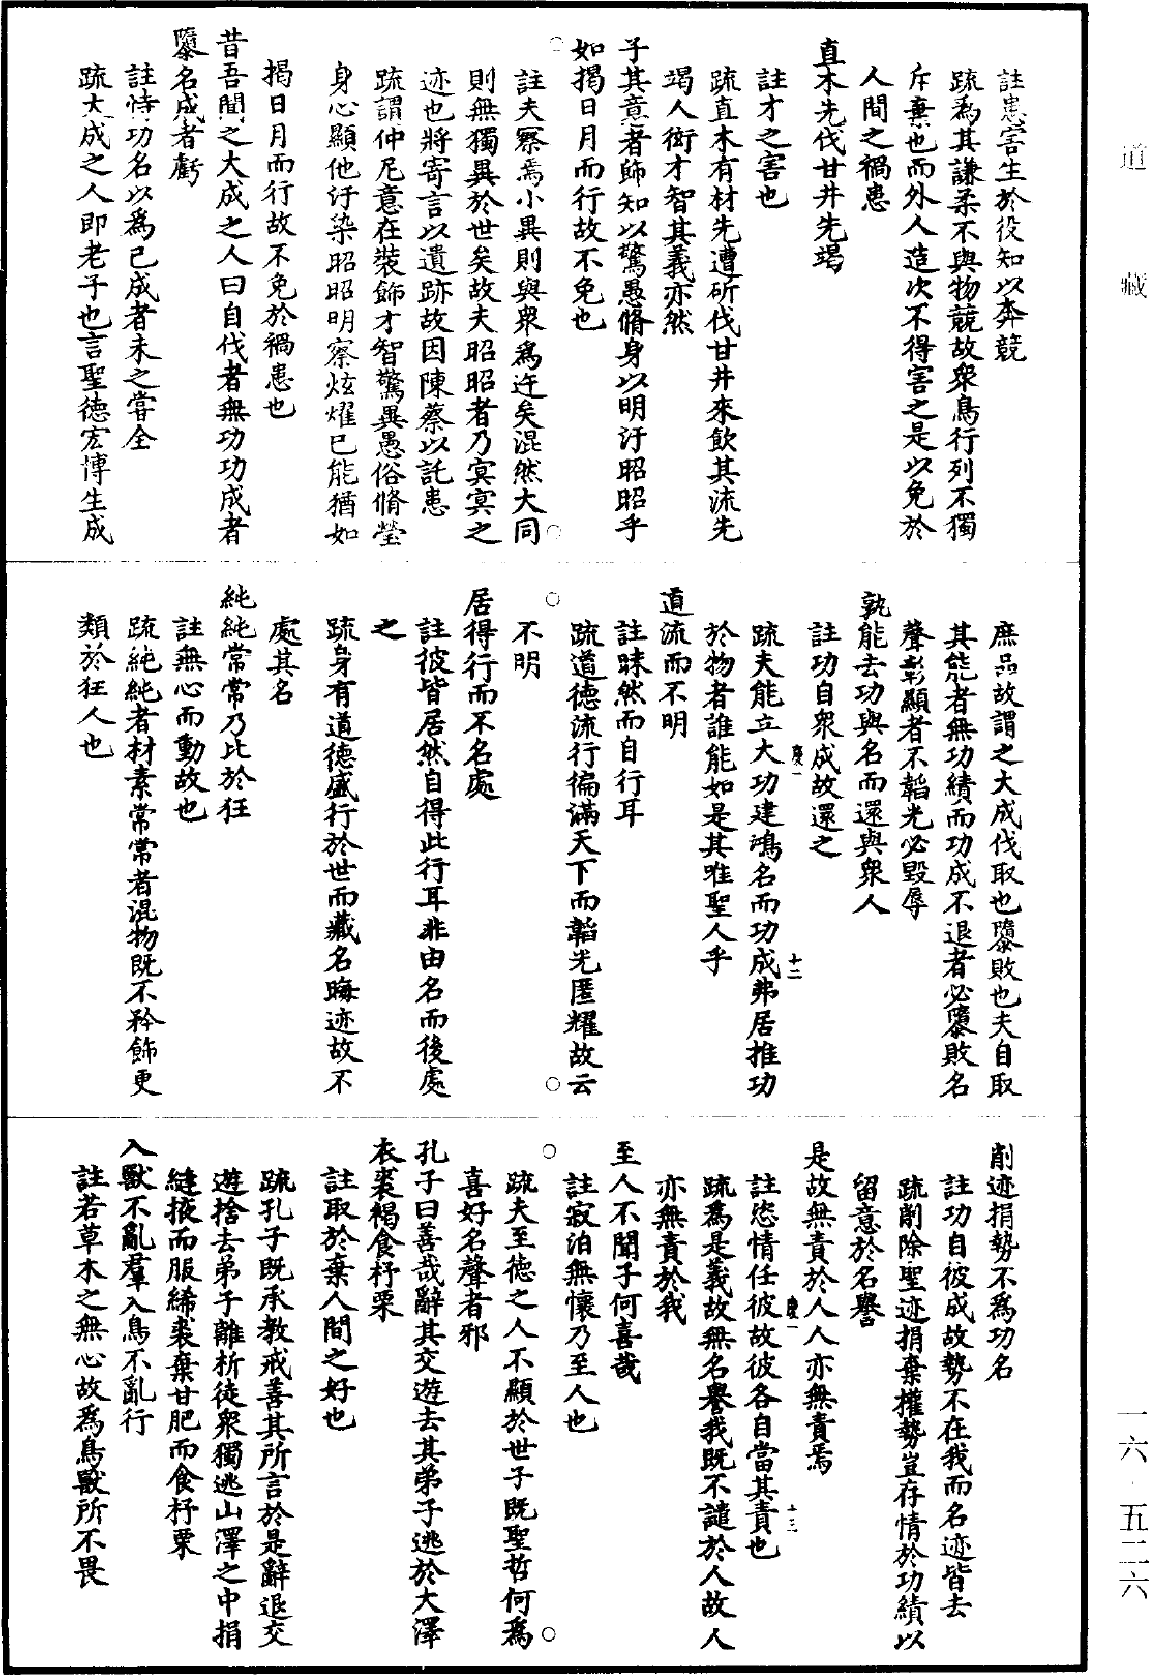 道藏
註患害生於役知以奔競
疏為其謙柔不與物競故衆鳥行列不獨
斥棄也而外人造次不得害之是以免於
人間之禍患
直木先伐甘井先竭
註才之害也
疏直木有材先遭斫伐甘井來飲其流先
竭人衒才智其義亦然
子其意者飾知以驚愚脩身以明汙昭昭乎
如揭日月而行故不免也
註夫察焉小異則與衆為迕矣混然大同
則無獨異於世矣故夫昭昭者乃㝠㝠之
迹也將寄言以遺跡故因陳蔡以託患
疏謂仲尼意在裝飾才智驚異愚俗脩瑩
身心顯他汙染昭昭明察炫燿己能猶如
揭日月而行故不免於禍患也
昔吾聞之大成之人曰自伐者無功功成者
隳名成者虧
註恃功名以為已成者未之嘗全
疏大成之人即老子也言聖德宏博生成
庶品故謂之大成伐取也隳敗也夫自取
其能者無功績而功成不退者必隳敗名
聲彰顯者不韜光必毀辱
孰能去功與名而還與衆人
註功自衆成故還之
疏夫能立大功建鴻名而功成弗居推功
慶一
十二
於物者誰能如是其唯聖人乎
道流而不明
註昧然而自行耳
疏道德流行徧滿天下而韜光匿耀故云
不明
居得行而不名處
註彼皆居然自得此行耳非由名而後處
之
疏身有道德盛行於世而藏名晦迹故不
處其名
純純常常乃比於狂
註無心而動故也
疏純純者材素常常者混物既不矜飾更
類於狂人也
削迹捐勢不為功名
註功自彼成故勢不在我而名迹皆去
疏削除聖迹捐棄權勢豈存情於功績以
留意於名譽
是故無責於人人亦無責焉
慶一
十三
註恣情任彼故彼各自當其責也
疏為是義故無名譽我既不譴於人故人
亦無責於我
至人不聞子何喜哉
註寂泊無懷乃至人也
疏夫至德之人不顯於世子既聖哲何為
喜好名聲者邪
孔子曰善哉辭其交遊去其弟子逃於大澤
衣裘褐食杼栗
註取於棄人間之好也
疏孔子既承教戒善其所言於是辭退交
遊捨去弟子離析徒衆獨逃山澤之中捐
縫掖而服絺裘棄甘肥而食杼栗
入獸不亂羣入鳥不亂行
註若草木之無心故為鳥獸所不畏
一六·五二六